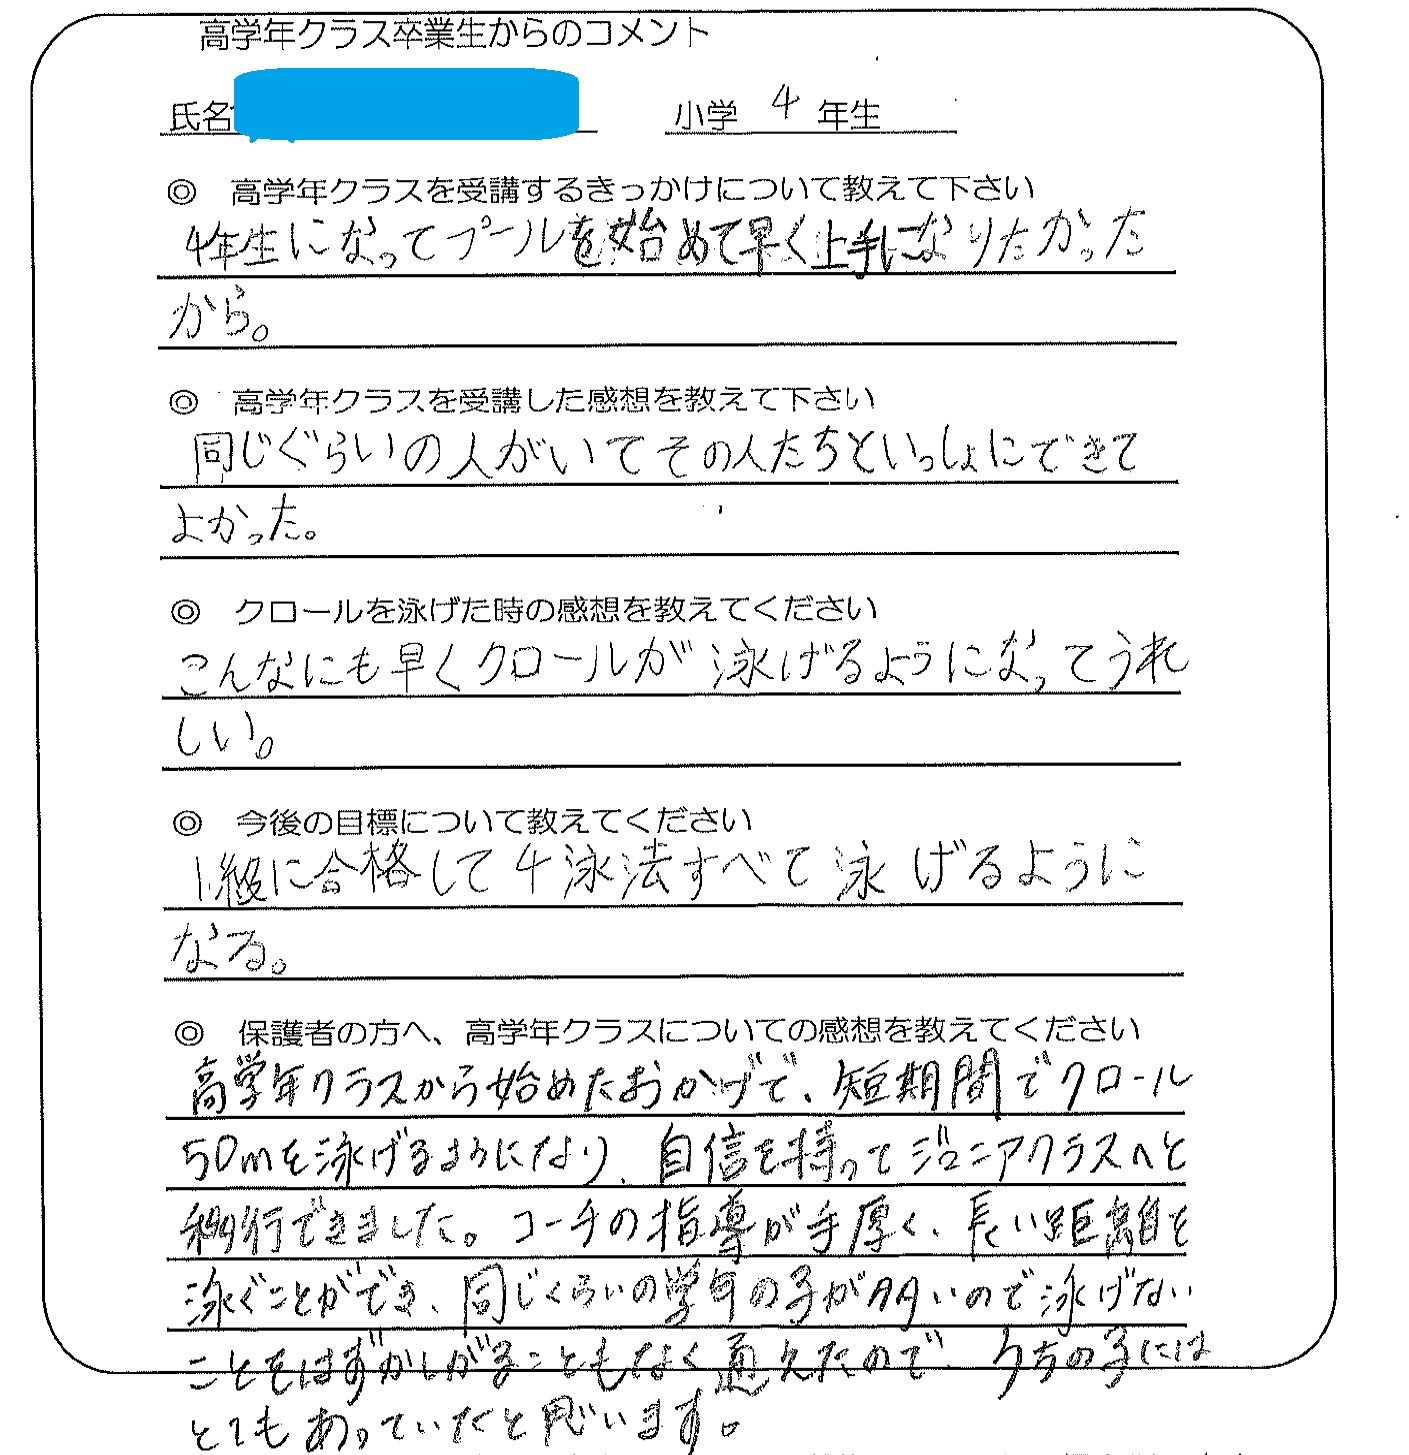 高学年クラス卒業生からのコメント
氏名 小学 4 年生
◎ 高学年クラスを受講するきっかけについて教えて下さい
4年生になってプールを始めて早く上手になりたかった
から。
◎ 高学年クラスを受講した感想を教えて下さい
同じぐらいの人がいてその人たちといっしょにできて
よかった。
◎ クロールを泳げた時の感想を教えてください
こんなにも早くクロールが泳げるようになってうれ
しい。
◎ 今後の目標について教えてください
1級に合格して4泳法すべて泳げるように
なる。
◎ 保護者の方へ、高学年クラスについての感想を教えてください
高学年クラスから始めたおかげで、短期間でクロール
50mを泳げるようになり、自信を持ってジュニアクラスへと
移行できました。コーチの指導が手厚く、長い距離を
泳ぐことができ、同じくらいの学年の子が多いので泳げない
ことをはずかしがることもなく通えたので、うちの子には
とてもあっていたと思います。